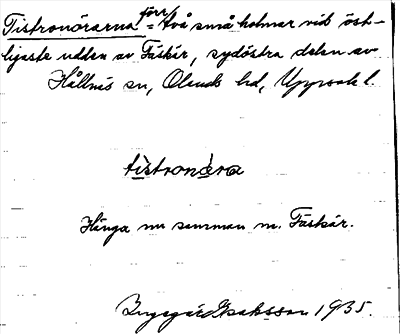 Tistronörarna förr = två små holmar vid öst-
ligaste udden av Fäskär, sydöstra delen av
Hållnäs sn, Olands hd, Uppsala l.
tìstronä̀ra
Hänga nu samman m. Fäskär.
Ingegärd Isaksson 1935.